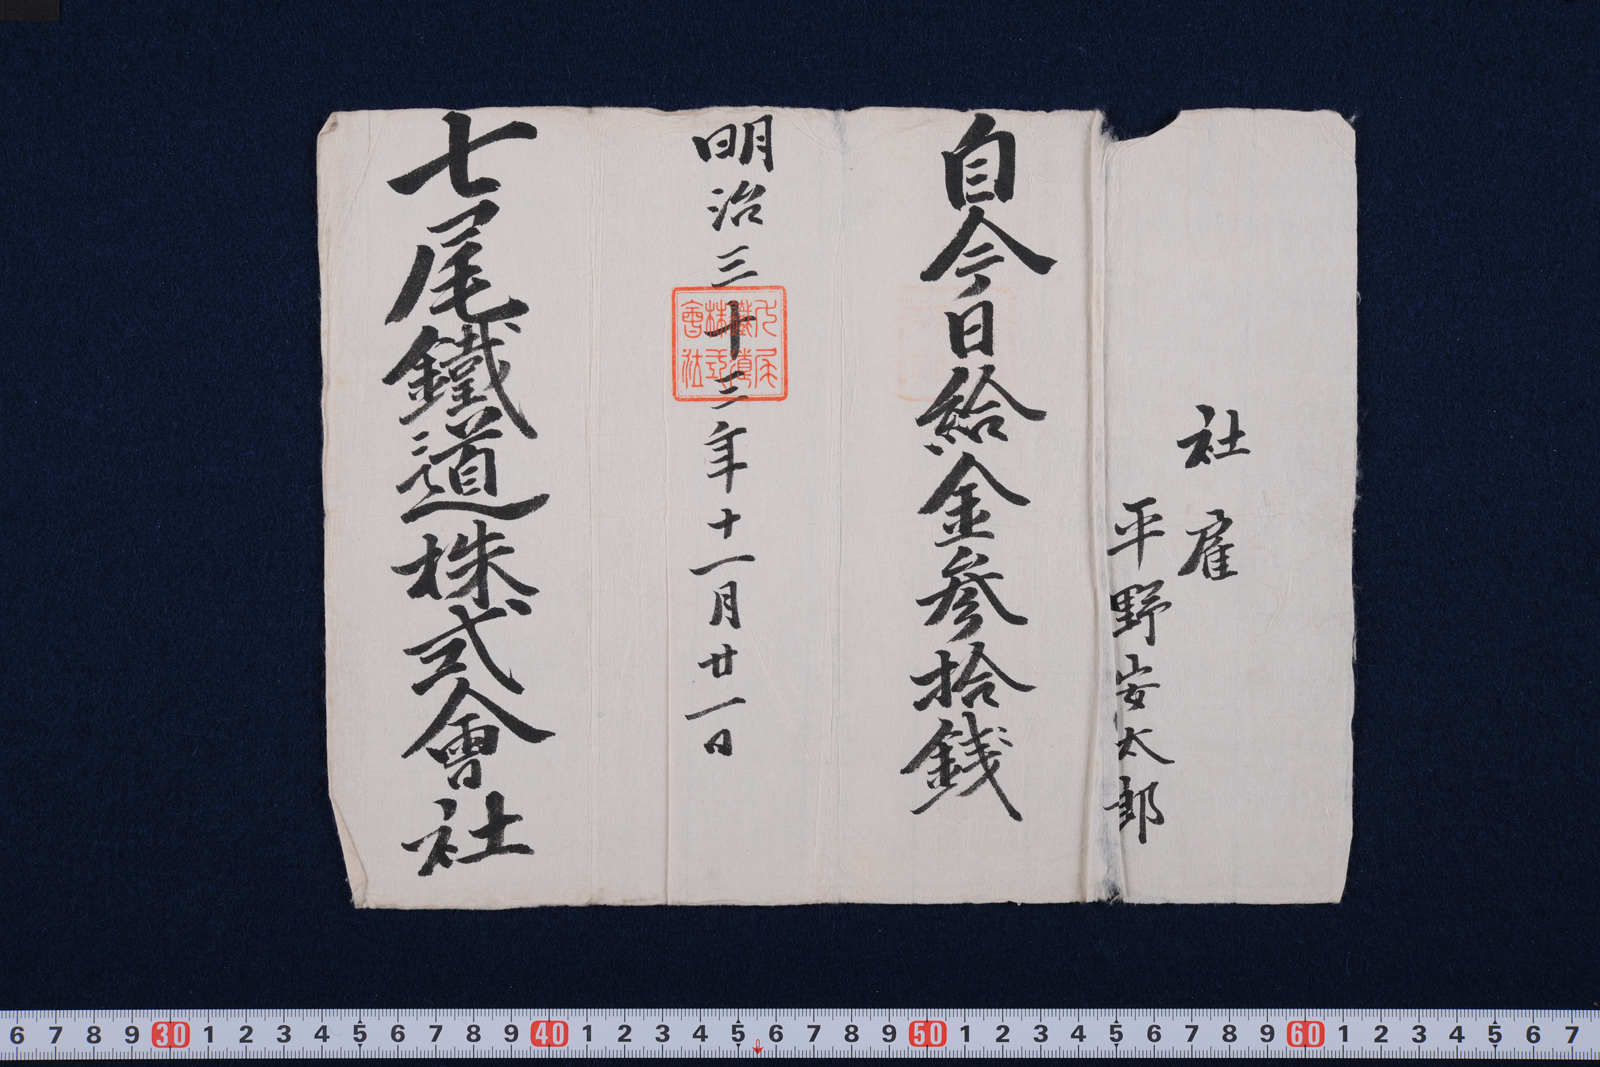 社雇
平野安太郎
自今日給金参拾銭
明治三十三年十一月廿一日
七尾鐵道株式會社
七尾
鐵道
株式
會社
6 7 8 9 30 1 2 3 4 5 6 7 8 9 40 1 2 3 4 5 6 7 8 9 50 1 2 3 4 5 6 7 8 9 60 1 2 3 4 5 6 7